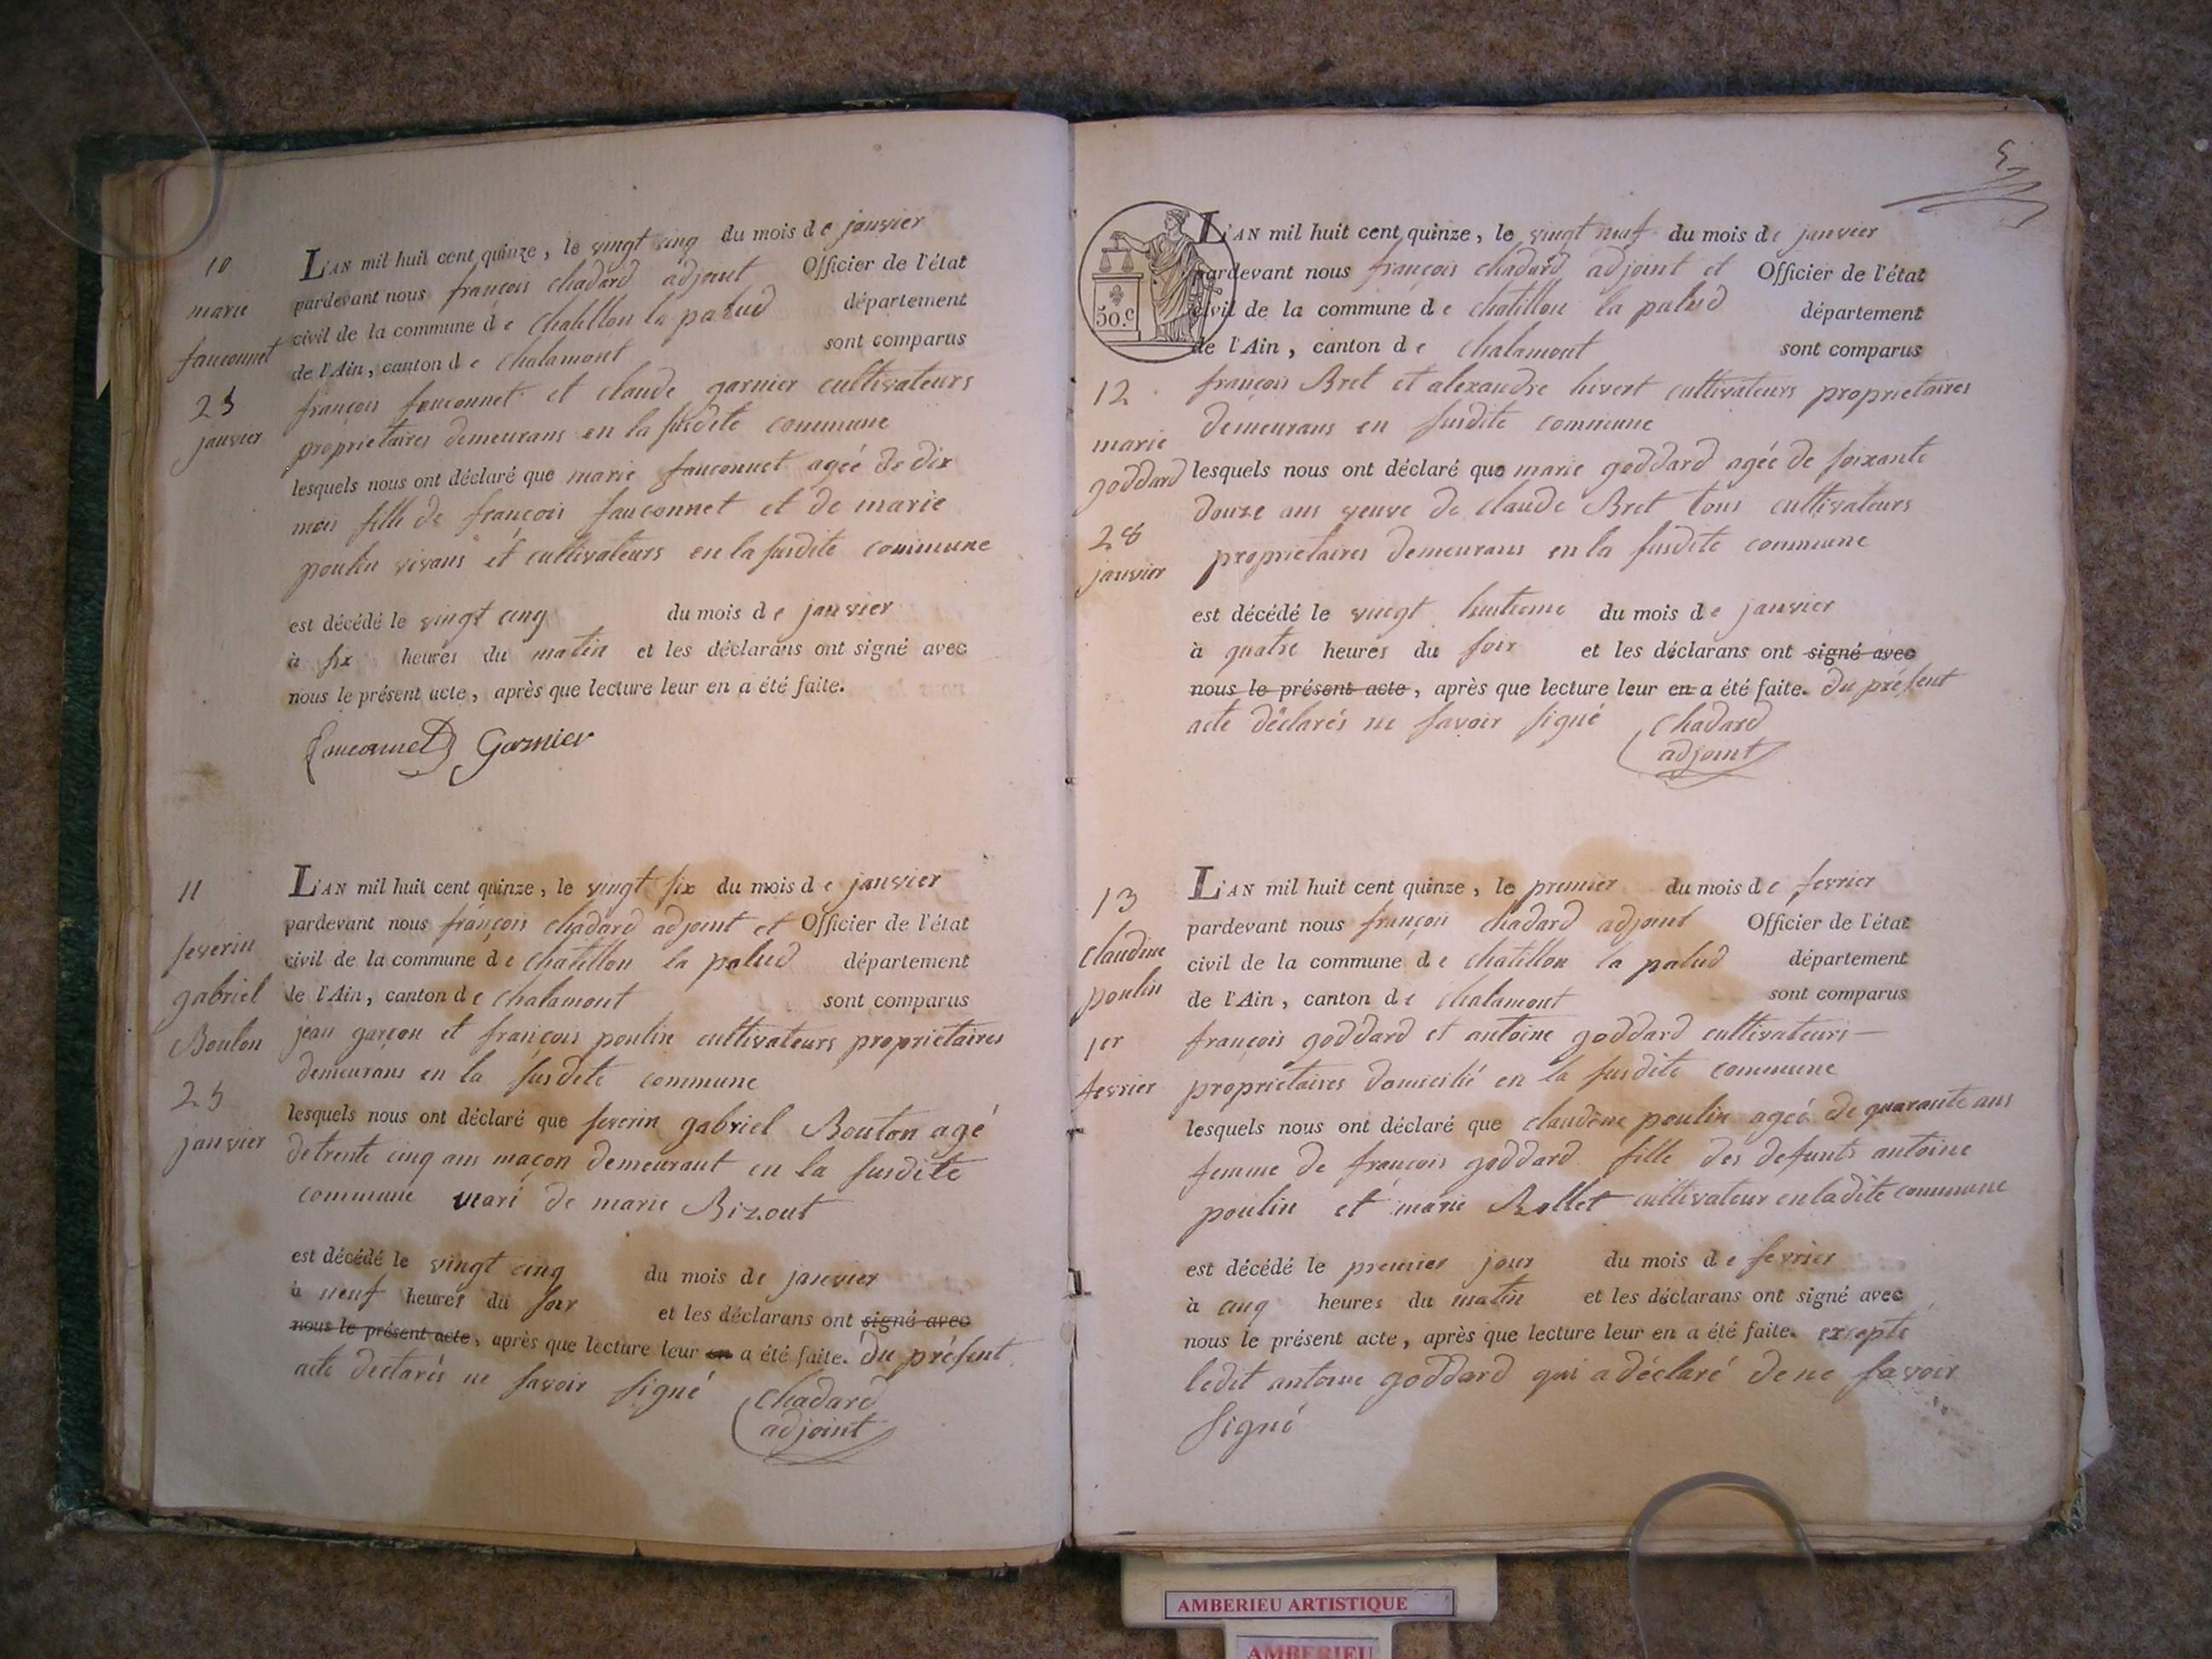 10
marie
fauconnet
25
janvier
L'AN mil huit cent quinze, le vingt cinq du mois de janvier
pardevant nous françois chadard adjoint Officier de l'état
civil de la commune de chatillon la palud département
de l'Ain, canton de chalamont sont comparus
françois fauconnet et claude garnier cultivateurs
proprietaires demeurans en la susdite commune
lesquels nous ont déclaré que marie fauconnet agéé de dix
mois fille de françois fauconnet et de marie
poulin vivans et cultivateurs en la susdite commune
est décédé le vingt cinq du mois de janvier
à six heures du matin et les déclarans ont signé avec
nous le présent acte, après que lecture leur en a été faite.
fauconnet Garnier
11
severin
gabriel
Bouton
25
janvier
L'AN mil huit cent quinze, le vingt six du mois de janvier
pardevant nous françois chadard adjoint et Officier de l'état
civil de la commune de chatillon la palud département
de l'Ain, canton de chalamont sont comparus
jean garçon et françois poulin cultivateurs proprietaires
demeurans en la susdite commune
lesquels nous ont déclaré que severin gabriel Bouton agé
de trente cinq ans maçon demeurant en la susdite
commune mari de marie Bizout
est décédé le vingt cinq du mois de janvier
à neuf heures du soir et les déclarans ont signé avec
nous le présent acte, après que lecture leur en a été faite. du présent
acte declarés ne savoir signé chadard
adjoint
5
50.c
12
marie
goddard
28
janvier
L'AN mil huit cent quinze, le vingt neuf du mois de janvier
pardevant nous françois chadard adjoint et Officier de l'état
civil de la commune de chatillon la palud département
de l'Ain, canton de chalamont sont comparus
françois Bret et alexandre hivert cultivateurs proprietaires
demeurans en susdite commune
lesquels nous ont déclaré que marie goddard agéé de soixante
douze ans veuve de claude Bret tous cultivateurs
proprietaires demeurans en la susdite commune
est décédé le vingt huitieme du mois de janvier
à quatre heures du soir et les déclarans ont signé avec
nous le présent acte, après que lecture leur en a été faite. du présent
acte déclarés ne savoir signé chadard
adjoint
13
claudine
poulin
1er
fevrier
L'AN mil huit cent quinze, le premier du mois de fevrier
pardevant nous françois chadard adjoint Officier de l'état
civil de la commune de chatillon la palud département
de l'Ain, canton de chalamont sont comparus
françois goddard et antoine goddard cultivateurs
proprietaires domicilié en la susdite commune
lesquels nous ont déclaré que claudine poulin ageé de quarante ans
femme de françois goddard fille des defunts antoine
poulin et marie Rollet cultivateur en ladite commune
est décédé le premier jour du mois de fevrier
à cinq heures du matin et les déclarans ont signé avec
nous le présent acte, après que lecture leur en a été faite. excepté
ledit antoine goddard qui a déclaré de ne savoir
signé
AMBERIEU ARTISTIQUE
AMBERIEU